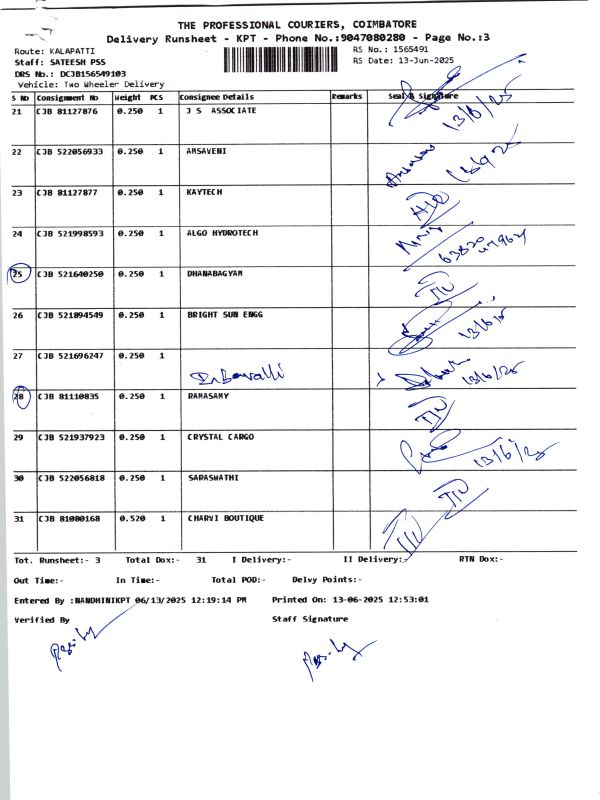 THE PROFESSIONAL COURIERS, COIMBATORE
Delivery Runsheet - KPT - Phone No.:9047080280 - Page No.:3
Route: KALAPATTI
RS No.: 1565491
Staff: SATEESH PSS
RS Date: 13-Jun-2025
DRS No.: DCJB156549103
Vehicle: Two Wheeler Delivery
S No Consignment No Weight PCS Consignee Details Remarks Seal & Signature
21 CJB 81127876 0.250 1 J S ASSOCIATE 13/6/25
22 CJB 522056933 0.250 1 AMSAVENI
23 CJB 81127877 0.250 1 KAYTECH
24 CJB 521998593 0.250 1 ALGO HYDROTECH
25 CJB 521640250 0.250 1 DHANABAGYAM
26 CJB 521894549 0.250 1 BRIGHT SUN ENGG 13/6/25
27 CJB 521696247 0.250 1 13/6/25
28 CJB 81110835 0.250 1 RAMASAMY
29 CJB 521937923 0.250 1 CRYSTAL CARGO 13/6/25
30 CJB 522056818 0.250 1 SARASWATHI
31 CJB 81080168 0.520 1 CHARVI BOUTIQUE
Tot. Runsheet:- 3 Total Dox:- 31 I Delivery:- II Delivery:- RTN Dox:-
Out Time:- In Time:- Total POD:- Delvy Points:-
Entered By :NANDHINIKPT 06/13/2025 12:19:14 PM Printed On: 13-06-2025 12:53:01
Verified By Staff Signature